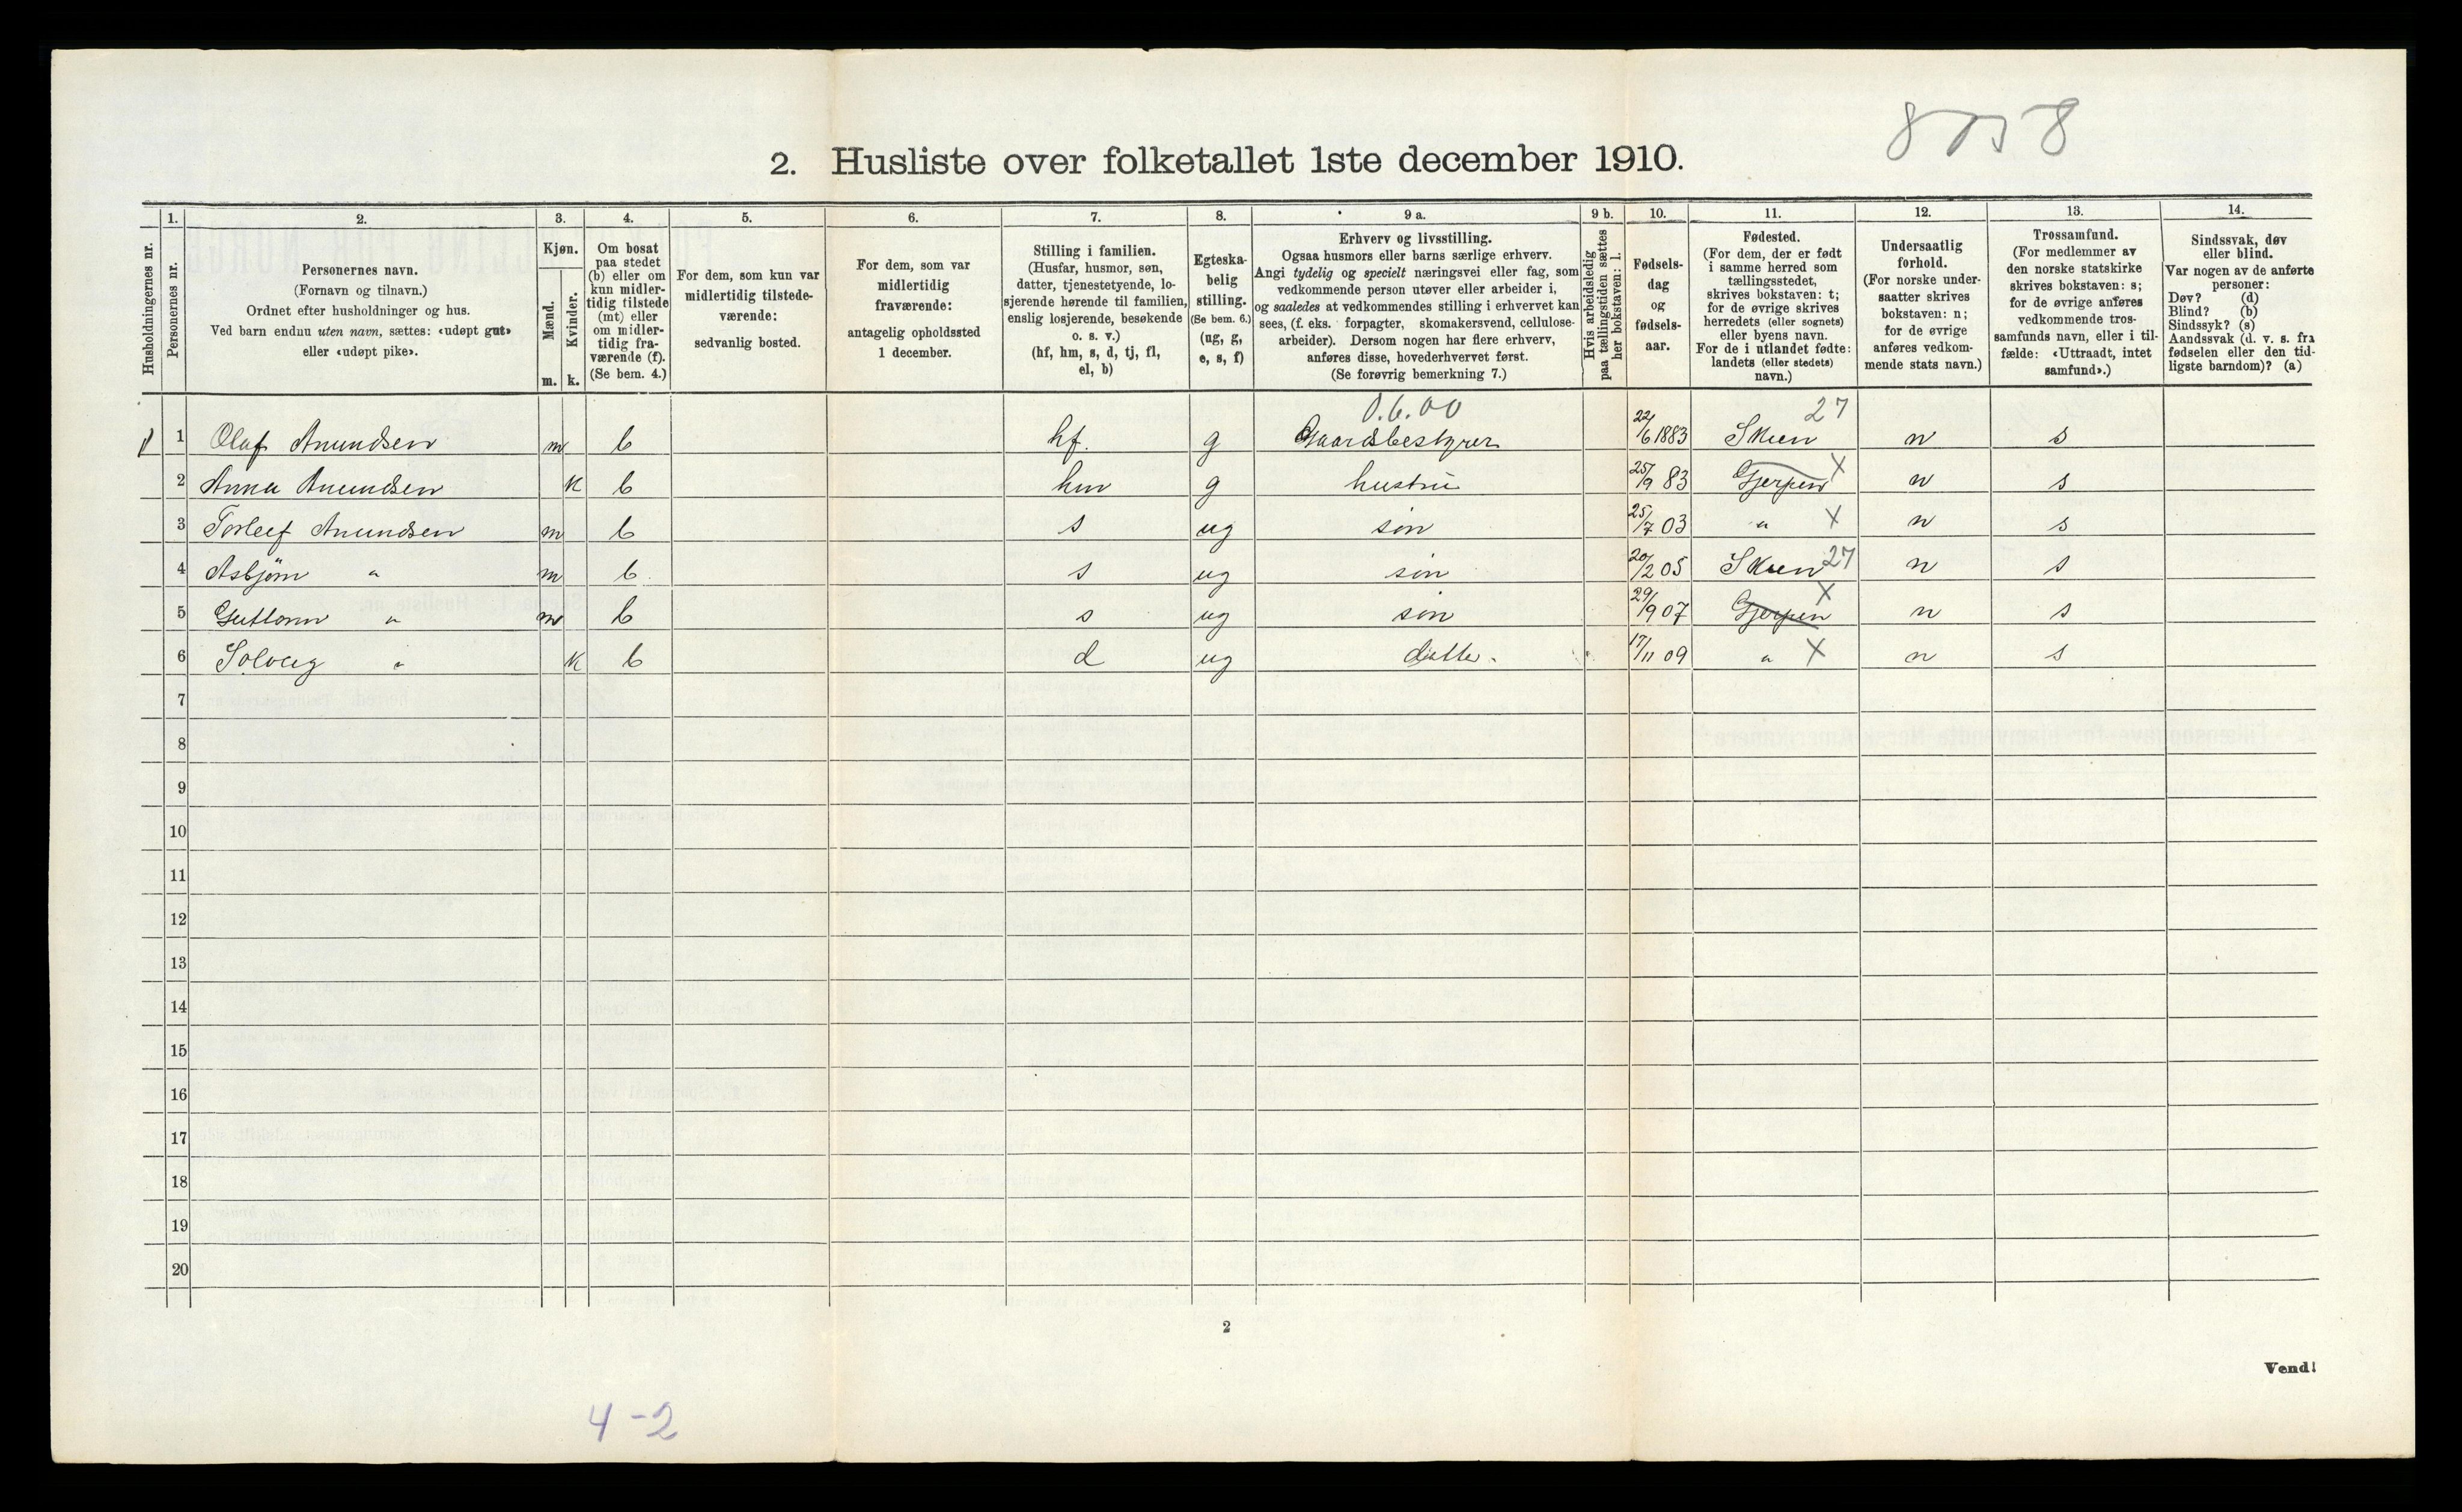 8058
2. Husliste over folketallet 1ste december 1910.
Husholdningernes nr.
1.
Personernes nr.
2.
Personernes navn.
(Fornavn og tilnavn.)
Ordnet efter husholdninger og hus.
Ved barn endnu uten navn, sættes: «udøpt gut»
eller «udøpt pike».
3.
Kjøn.
Mænd.
Kvinder.
m. k.
4.
Om bosat
paa stedet
(b) eller om
kun midler-
tidig tilstede
(mt) eller
om midler-
tidig fra-
værende (f).
(Se bem. 4.)
5.
For dem, som kun var
midlertidig tilstede-
værende:
sedvanlig bosted.
6.
For dem, som var
midlertidig
fraværende:
antagelig opholdssted
1 december.
7.
Stilling i familien.
(Husfar, husmor, søn,
datter, tjenestetyende, lo-
sjerende hørende til familien,
enslig losjerende, besøkende
o. s. v.)
(hf, hm, s, d, tj, fl,
el, b)
8.
Egteska-
belig
stilling.
(Se bem. 6.)
(ug, g,
e, s, f)
9 a.
Erhverv og livsstilling.
Ogsaa husmors eller barns særlige erhverv.
Angi tydelig og specielt næringsvei eller fag, som
vedkommende person utøver eller arbeider i,
og saaledes at vedkommendes stilling i erhvervet kan
sees, (f. eks. forpagter, skomakersvend, cellulose-
arbeider). Dersom nogen har flere erhverv,
anføres disse, hovederhvervet først.
(Se forøvrig bemerkning 7.)
9 b.
Hvis arbeidsledig
paa tællingstiden sættes
her bokstaven: l.
10.
Fødsels-
dag
og
fødsels-
aar.
11.
Fødested.
(For dem, der er født
i samme herred som
tællingsstedet,
skrives bokstaven: t;
for de øvrige skrives
herredets (eller sognets)
eller byens navn.
For de i utlandet fødte:
landets (eller stedets)
navn.)
12.
Undersaatlig
forhold.
(For norske under-
saatter skrives
bokstaven: n;
for de øvrige
anføres vedkom-
mende stats navn.)
13.
Trossamfund.
(For medlemmer av
den norske statskirke
skrives bokstaven: s;
for de øvrige anføres
vedkommende tros-
samfunds navn, eller i til-
fælde: «Uttraadt, intet
samfund».)
14.
Sindssvak, døv
eller blind.
Var nogen av de anførte
personer:
Døv? (d)
Blind? (b)
Sindssyk? (s)
Aandssvak (d. v. s. fra
fødselen eller den tid-
ligste barndom)? (a)
0.6.00 27
1 Olaf Anundsen m b hf. g Gaardsbestyrer 22/6 1883 Skien n s
2 Anna Anundsen k b hm g hustru 25/9 83 Gjerpen X n s
3 Torleif Anundsen m b s ug søn 25/7 03 " X n s
4 Asbjørn " m b s ug søn 20/2 05 Skien 27 n s
5 Guttorm " m b s ug søn 29/9 07 Gjerpen X n s
6 Solveig " k b d ug datter. 17/11 09 " X n s
7
8
9
10
11
12
13
14
15
16
17
18
19
20
2
Vend!
4-2